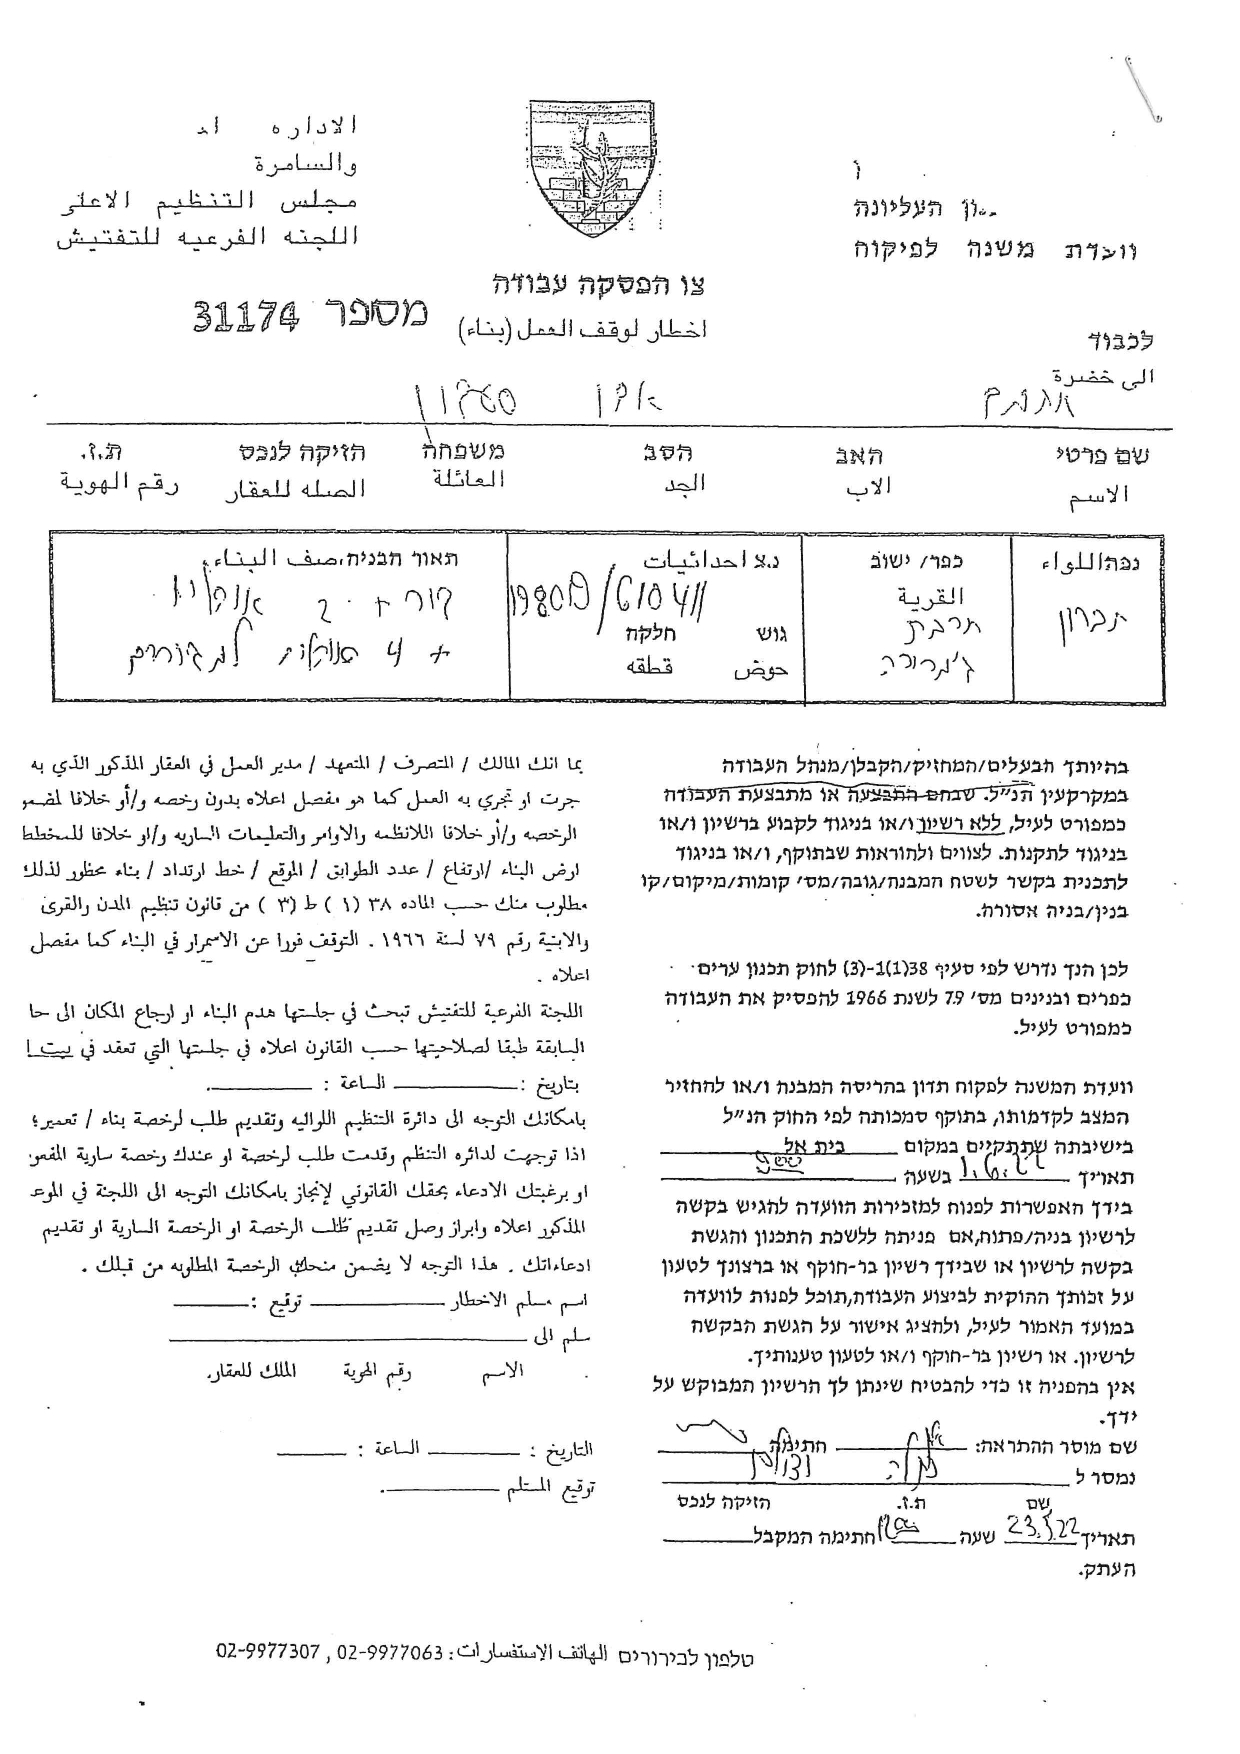 الاداره
والسامرة
مجلس التنظيم الاعلى
اللجنه الفرعيه للتفتيش
העליונה
וועדת משנה לפיקוח
צו הפסקה עבודה
اخطار لوقف العمل (بناء)
מספר 31174
לכבוד
الى حضرة
שם פרטי האב הסב משפחה הזיקה לנכס ת.ז.
الاسم الاب الجد العائلة الصله للعقار رقم الهوية
נפה/اللواء כפר/ ישוב נ.צ احداثيات תאור הבניה،صف البناء
القرية
חברון חרבת
גוש חלקה
حوض قطقه
+ 4 אוהלים למגורים
בהיותך הבעלים/המחזיק/הקבלן/מנהל העבודה
במקרקעין הנ״ל. שבהם התבצעה או מתבצעת העבודה
כמפורט לעיל, ללא רשיון ו/או בניגוד לקבוע ברשיון ו/או
בניגוד לתקנות. לצווים ולהוראות שבתוקף, ו/או בניגוד
לתכנית בקשר לשטח המבנה/גובה/מס׳ קומות/מיקום/קו
בנין/בניה אסורה.
לכן הנך נדרש לפי סעיף 38(1)1-(3) לחוק תכנון ערים
כפרים ובנינים מס׳ 79 לשנת 1966 להפסיק את העבודה
כמפורט לעיל.
וועדת המשנה לפקוח תדון בהריסה המבנה ו/או להחזיר
המצב לקדמותו, בתוקף סמכותה לפי החוק הנ״ל
בישיבתה שתתקיים במקום בית אל
תאריך בשעה
בידך האפשרות לפנות למזכירות הוועדה להגיש בקשה
לרשיון בניה/פתוח,אם פניתה ללשכת התכנון והגשת
בקשה לרשיון או שבידך רשיון בר-חוקף או ברצונך לטעון
על זכותך ההוקית לביצוע העבודת,תוכל לפנות לוועדה
במועד האמור לעיל, ולהציג אישור על הגשת הבקשה
לרשיון. או רשיון בר-חוקף ו/או לטעון טענותיך.
אין בהפניה זו כדי להבטיח שינתן לך הרשיון המבוקש על
ידך.
שם מוסר ההתראה: חתימה
נמסר ל
שם ת.ז. הזיקה לנכס
תאריך 23.5.22 שעה חתימה המקבל
העתק.
بما انك المالك / المتصرف / المتعهد / مدير العمل في العقار المذكور الذي به
جرت او تجري به العمل كما هو مفصل اعلاه بدون رخصه و/أو خلافا لمضمو
الرخصه و/أو خلافا اللانظمه والاوامر والتعليمات الساريه و/او خلافا للمخطط
ارض البناء /ارتفاع / عدد الطوابق / الموقع / خط ارتداد / بناء محظور لذلك
مطلوب منك حسب الماده ٣٨ (١ ) ط (٣ ) من قانون تنظيم المدن والقرى
والابنية رقم ٧٩ لسنة ١٩٦٦ . التوقف فورا عن الاستمرار في البناء كما مفصل
اعلاه .
اللجنة الفرعية للتفتيش تبحث في جلستها هدم البناء او ارجاع المكان الى حا
السابقة طبقا لصلاحيتها حسب القانون اعلاه في جلستها التي تعقد في بيت ا
بتاريخ : الساعة : .
بامكانك التوجه الى دائرة التنظيم اللوائيه وتقديم طلب لرخصة بناء / تعمير؛
اذا توجهت لدائره التنظم وقدمت طلب لرخصة او عندك رخصة سارية المفعو
او برغبتك الادعاء بحقك القانوني لإنجاز بامكانك التوجه الى اللجنة في الموع
المذكور اعلاه وابراز وصل تقديم طلب الرخصة او الرخصة السارية او تقديم
ادعاءاتك . هذا التوجه لا يضمن منحك الرخصة المطلوبه من قبلك .
اسم مسلم الاخطار توقيع :
سلم الى
الاسم رقم الهوية الملك للعقار.
التاريخ : الساعة :
توقيع المستلم .
טלפון לבירורים الهاتف الاستفسارات: 02-9977063 , 02-9977307